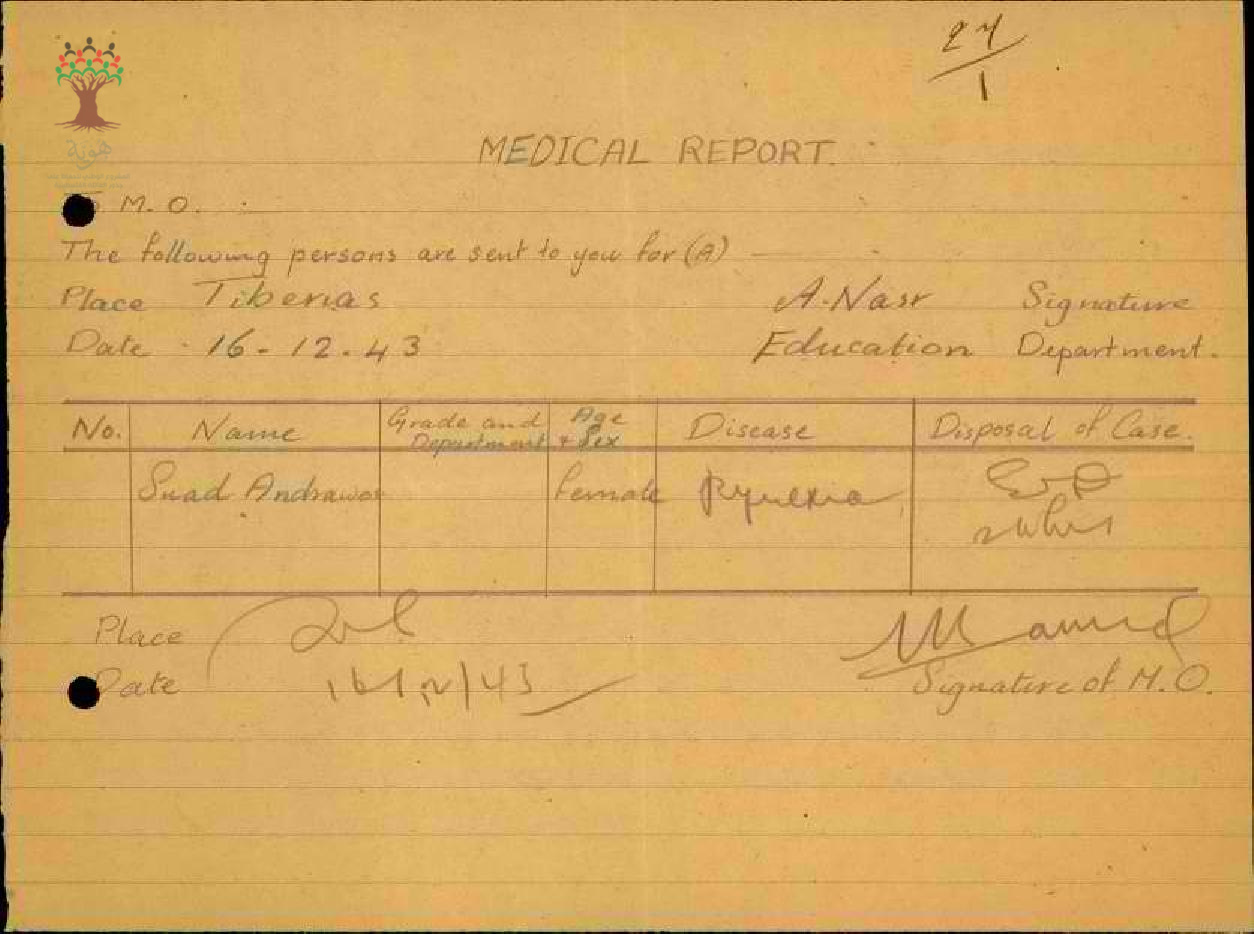 27
1
هوية
MEDICAL REPORT.
M. O.
The following persons are sent to you for (A)
Place Tiberias A. Nasr Signature
Date 16-12.43 Education Department.
No. Name Grade and Department Age + Sex Disease Disposal of Case.
Suad Andrawos female
Place
Date 16/12/43 Signature of M.O.